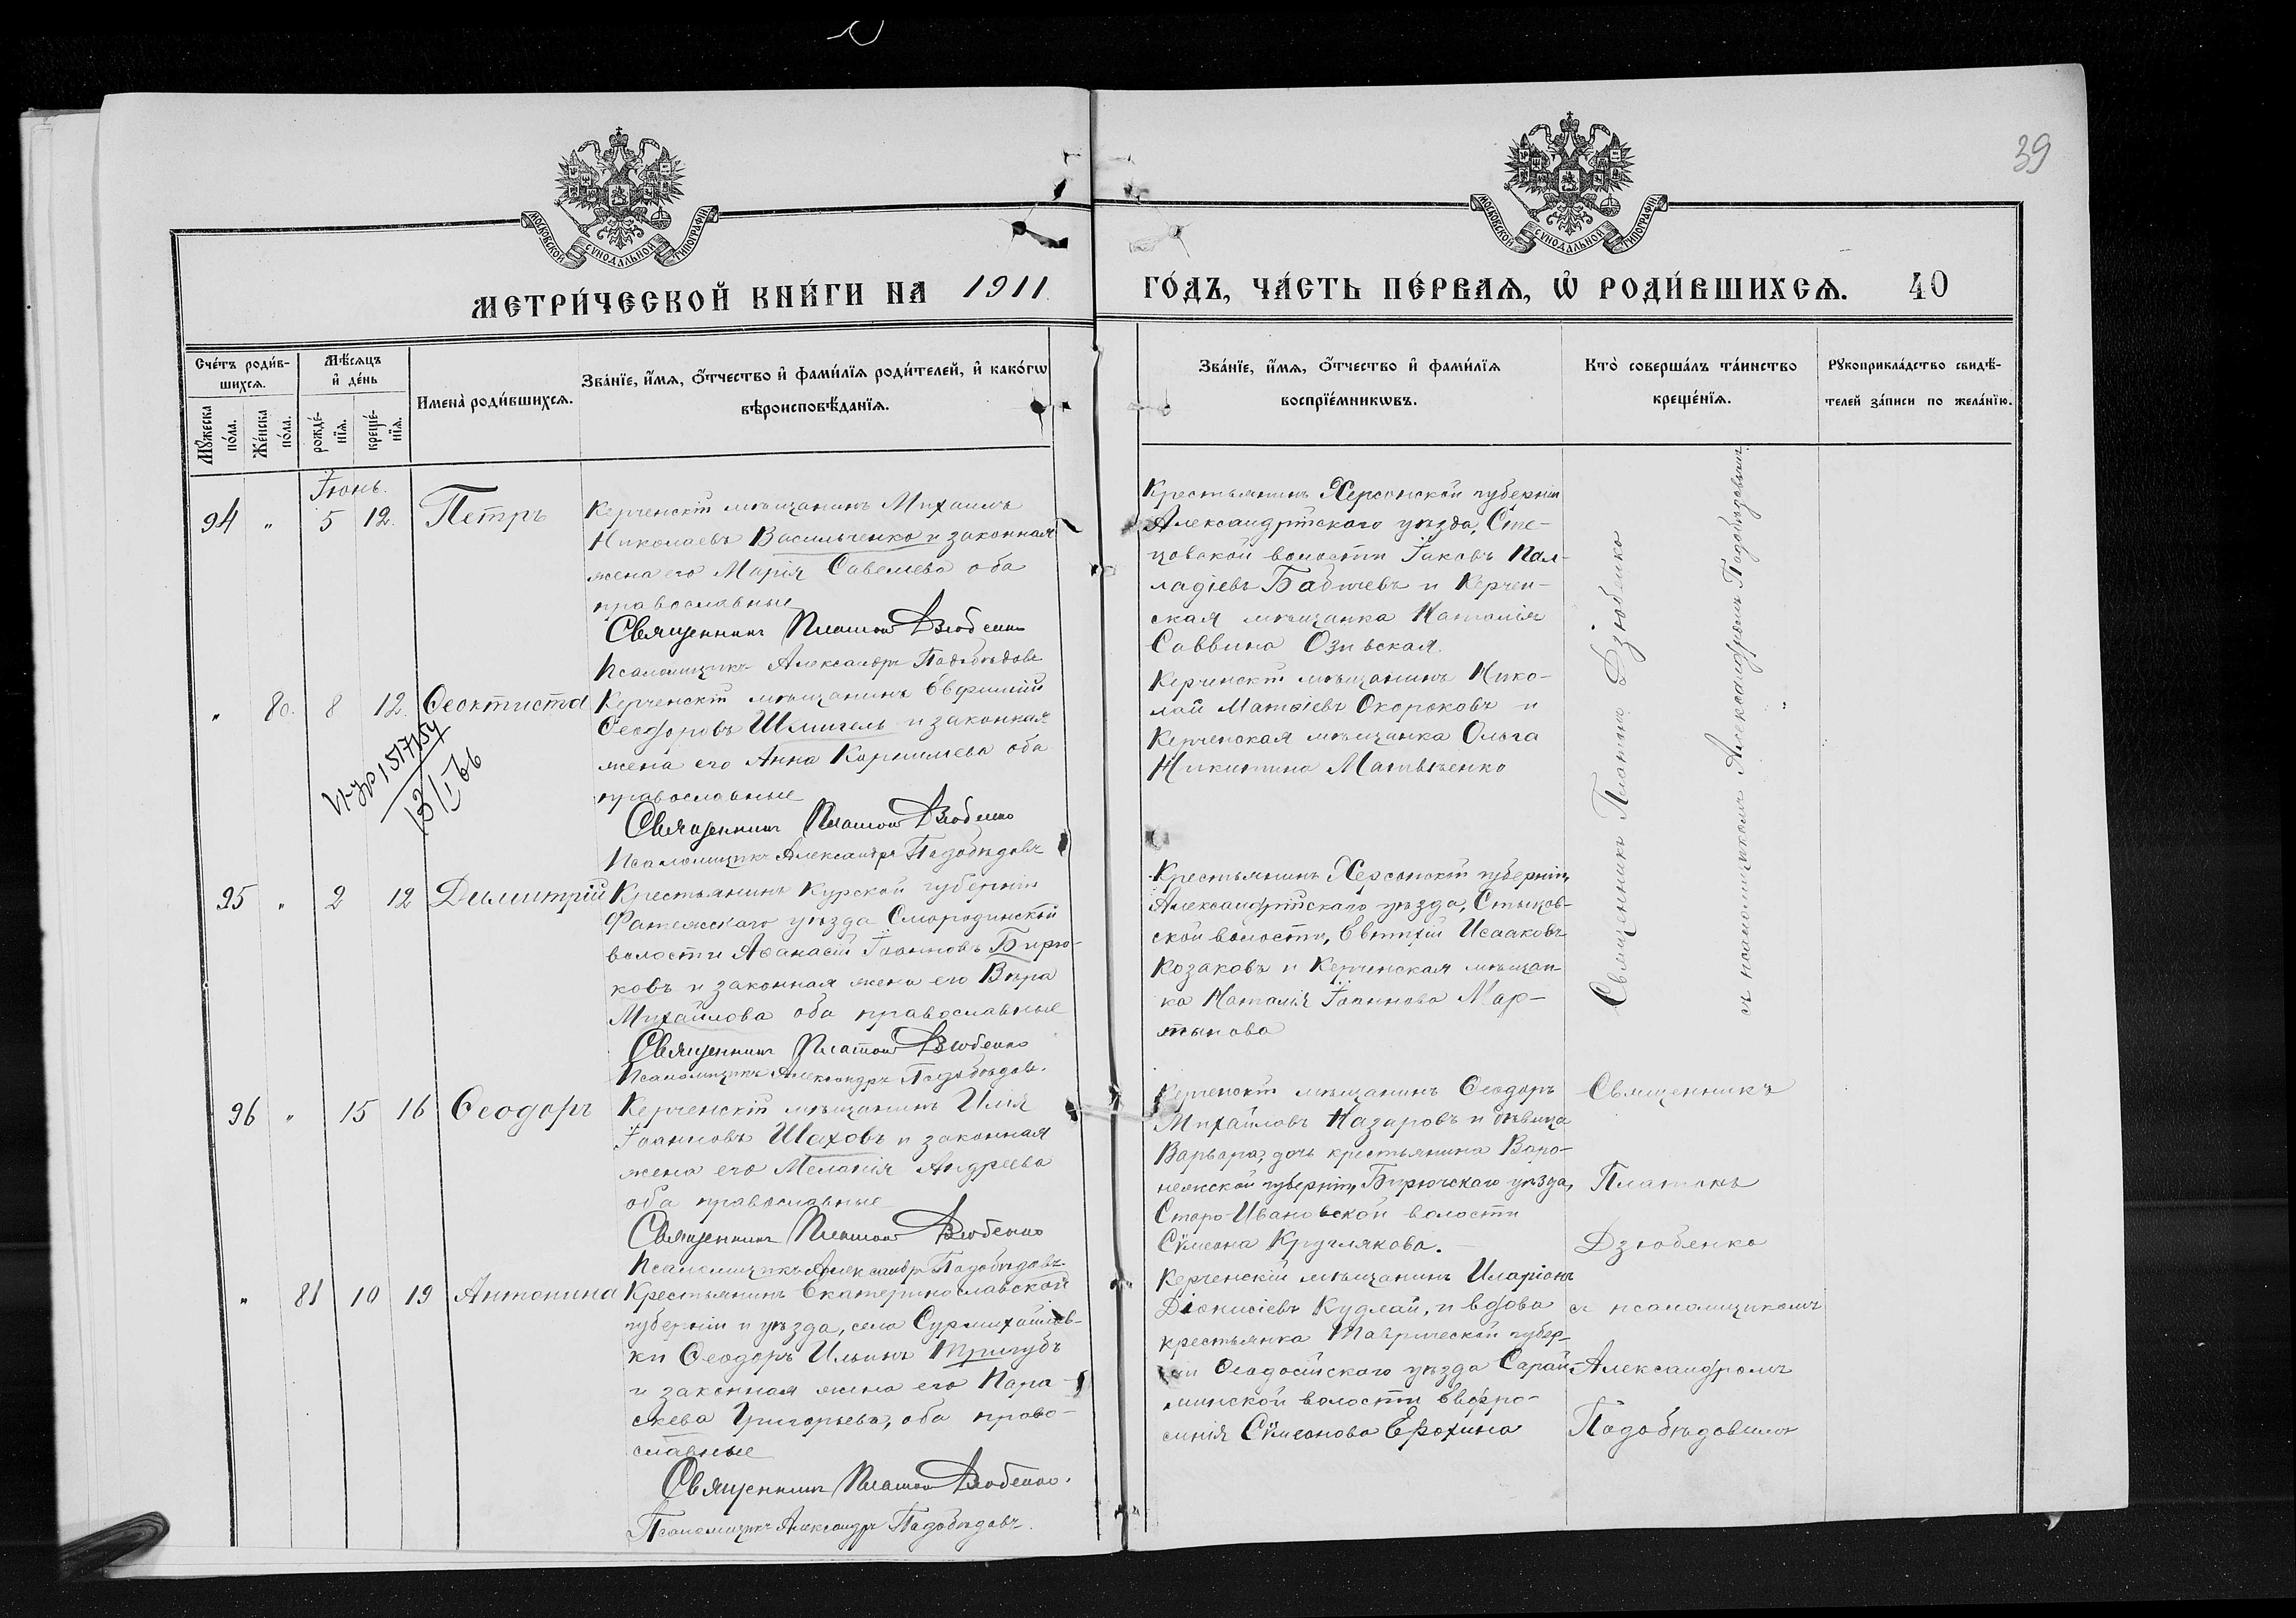 39
МОСКОВСКОЙ СѴНОДАЛЬНОЙ ТИПОГРАФІИ
МОСКОВСКОЙ СѴНОДАЛЬНОЙ ТИПОГРАФІИ
МЕТРИ́ЧЕСКОЙ КНИ́ГИ НА 1911
ГО́ДЪ, ЧА́СТЬ ПЕ́РВАѦ, Ѡ҆ РОДИ́ВШИХСѦ. 40
Сче́тъ роди́в-
шихсѧ.
Мꙋ́жеска
по́ла.
Же́нска
по́ла.
Мѣ́сѧцъ
и҆ де́нь
рожде́-
нїѧ.
креще́-
нїѧ.
Имена̀ роди́вшихсѧ.
Зва́нїе, и҆́мѧ, ѻ҆́тчество и҆ фами́лїѧ роди́телей, и҆ како́гѡ
вѣроисповѣ́данїѧ.
Зва́нїе, и҆́мѧ, ѻ҆́тчество и҆ фами́лїѧ
воспрїе́мникѡвъ.
Кто̀ соверша́лъ та́инство
креще́нїѧ.
Рꙋкоприкла́дство свидѣ́-
телей за́писи по жела́нїю.
Іюнь.
94 " 5 12. Петръ
Керченскій мѣщанинъ Михаилъ
Николаевъ Васильченко и законная
жена его Марія Савелева оба
православные
Священникъ Платонъ Дзюбенко
Псаломщикъ Александръ Подобѣдовъ
Крестьянинъ Херсонской губерніи
Александрійскаго уѣзда, Сте-
цовской волости Іаковъ Пал-
ладіевъ Бабичевъ и Керчен-
ская мѣщанка Наталія
Саввина
" 80. 8 12. Ѳеоктиста
Керченскій мѣщанинъ Евфимій
Ѳеодоровъ Шмигель и законная
жена его Анна Корнилева оба
православные
Священникъ Платонъ Дзюбенко
Псаломщикъ Александръ Подобѣдовъ
1517154
13/I 66
Керченскій мѣщанинъ Нико-
лай Матѳіевъ Окороковъ и
Керченская мѣщанка Ольга
Никитина Матвѣенко
95 " 2 12 Димитрій
Крестьянинъ Курской губерніи
Фатежскаго уѣзда Смородинской
волости Аѳанасій Іоанновъ Бирю-
ковъ и законная жена его Вѣра
Михайлова оба православные
Священникъ Платонъ Дзюбенко
Псаломщикъ Александръ Подобѣдовъ.
Крестьянинъ Херсонскій губерніи,
Александрійскаго уѣзда, Стыцов-
ской волости, Евтихій Исааковъ
Козаковъ и Керченская мѣщан-
ка Наталія Іоаннова Мар-
тынова
Священникъ Платонъ Дзюбенко
съ псаломщикомъ Александромъ Подобѣдовымъ
"
96 " 15 16 Ѳеодоръ
Керченскій мѣщанинъ Илія
Іоанновъ Шаховъ и законная
жена его Меланія Андреева
оба православные
Священникъ Платонъ Дзюбенко
Псаломщикъ Александръ Подобѣдовъ
Керченскій мѣщанинъ Ѳеодоръ
Михайловъ Назаровъ и дѣвица
Варвара, дочь крестьянина Воро-
нежской губерніи, Бирючскаго уѣзда,
Старо-Ивановской волости
Сѵмеона Круглякова.
Священникъ
Платонъ
Дзюбенко
" 81 10 19 Антонина
Крестьянинъ Екатеринославской
губерніи и уѣзда, села Сурмихайлов-
ки Ѳеодоръ Ильинъ Тригубъ
и законная жена его Пара-
скева Григорьева, оба право-
славные
Священникъ Платонъ Дзюбенко.
Псаломщикъ Александръ Подобѣдовъ.
Керченскій мѣщанинъ Иларіонъ
Діонисіевъ Кудлай, и вдова
крестьянка Таврической губер-
ніи Ѳеодосійскаго уѣзда Сарай-
минской волости Евфро-
синія Сѵмеонова Ерохина
съ псаломщикомъ
Александромъ
Подобѣдовымъ